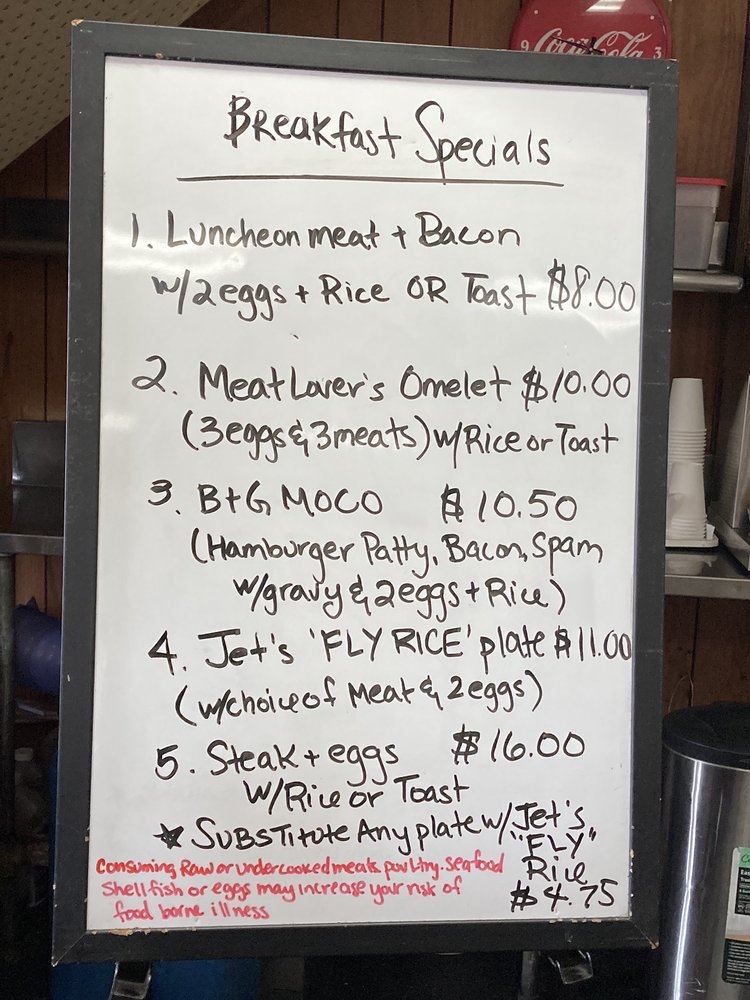 9 Coca-Cola 3
Breakfast Specials
1. Luncheon meat + Bacon
w/2eggs + Rice OR Toast $8.00
2. Meat Lover's Omelet $10.00
(3eggs & 3meats) w/Rice or Toast
3. B+G MOCO $10.50
(Hamburger Patty, Bacon, Spam
w/gravy & 2eggs + Rice)
4. Jet's 'FLY RICE' plate $11.00
(w/choice of Meat & 2eggs)
5. Steak + eggs $16.00
w/Rice or Toast
★ SUBSTITUTE Any plate w/Jet's
"FLY"
Rice
$4.75
Consuming Raw or undercooked meats, poultry, seafood
Shellfish or eggs may increase your risk of
food borne illness